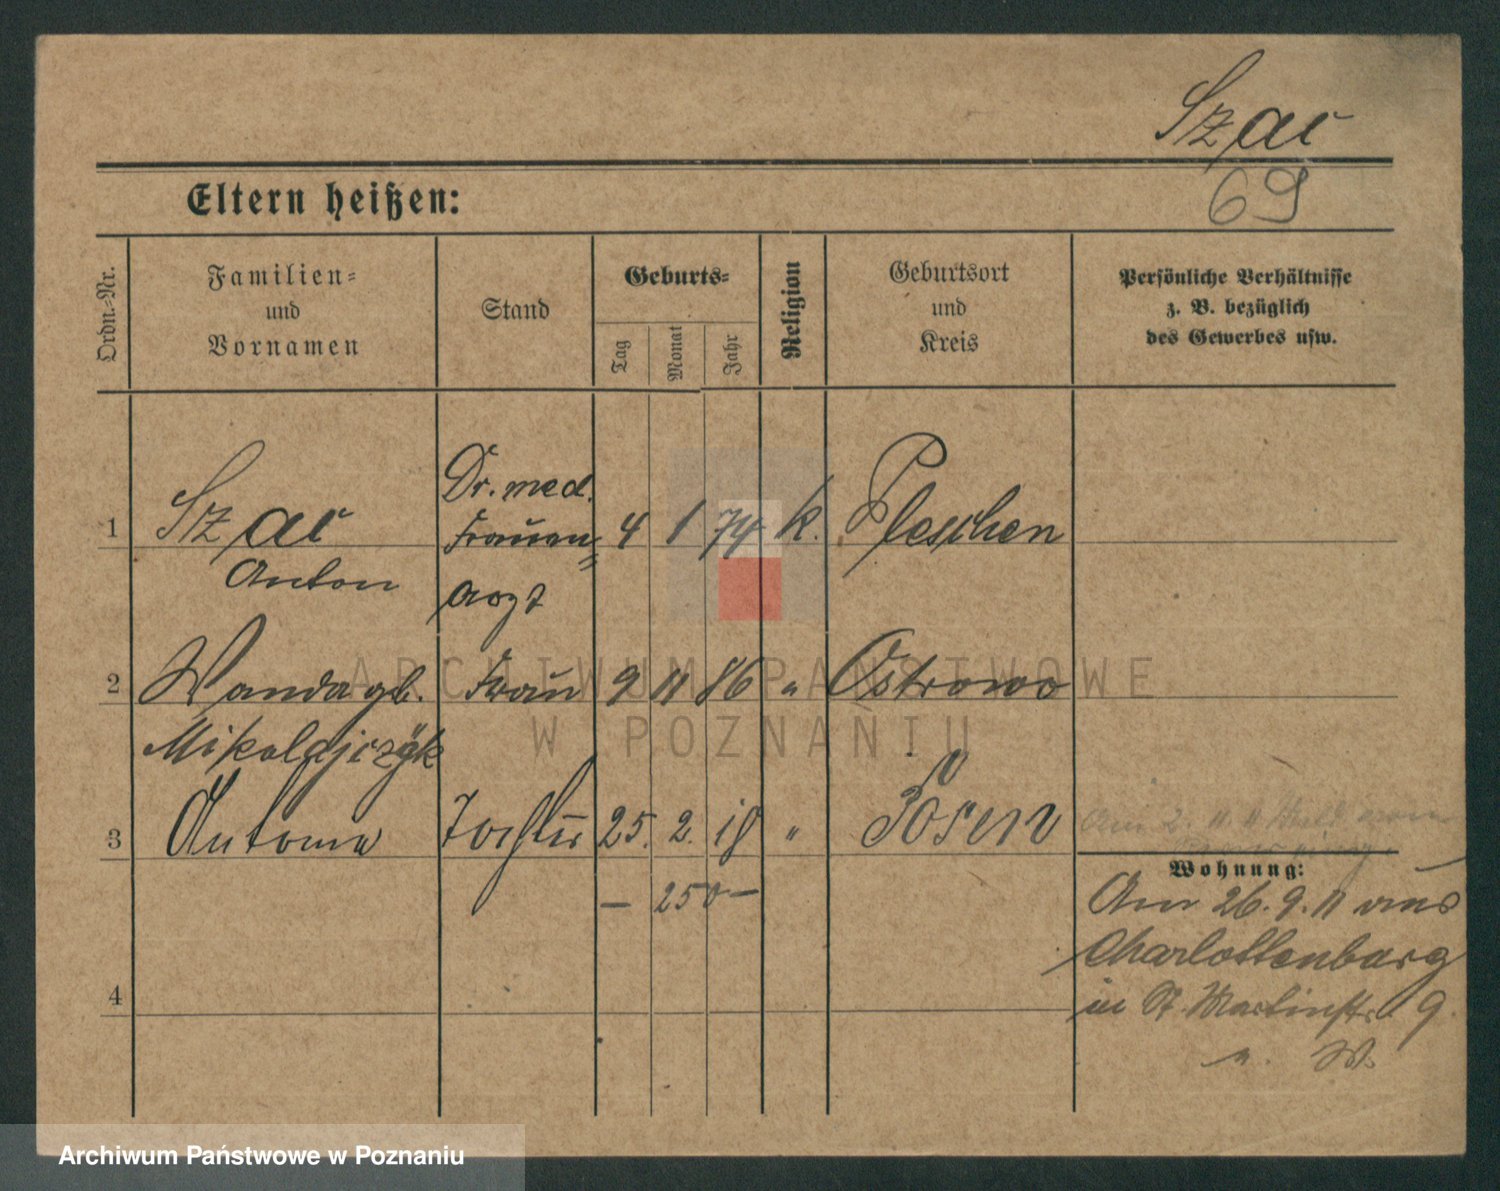 Szac
69
Eltern heißen:
Ordn.-Nr.
Familien- und Vornamen
Stand
Geburts-
Tag
Monat
Jahr
Religion
Geburtsort und Kreis
Persönliche Verhältnisse
z. B. bezüglich
des Gewerbes usw.
1 Szac Anton
Dr. med. Frauen= arzt
4 1 74 k. Pleschen
2 Wanda gb. Mikolajczÿk
Frau 9 11 86 " Ostrowo
3 Antonie Tochter 25. 2. 18 " Posen
— 250 —
Am 2. 11. 11
Wohnung:
Am 26.9.11 aus
Charlottenburg
in St. Martinstr. 9.
4
ARCHIWUM PAŃSTWOWE
W POZNANIU
Archiwum Państwowe w Poznaniu